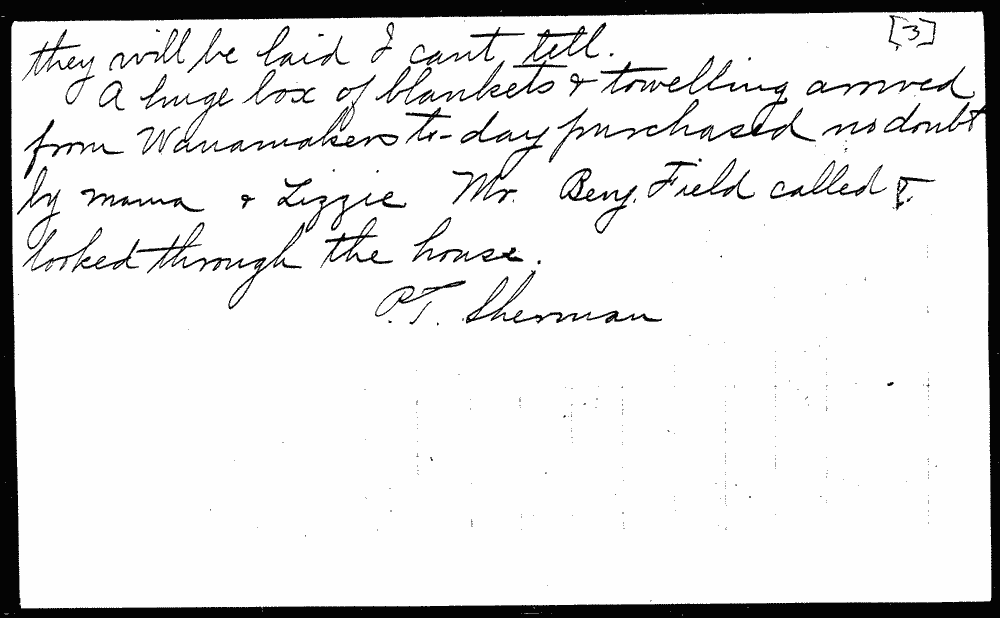 [3]
they will be laid I cant tell.
A huge box of blankets & towelling arrived
from Wanamakers to-day purchased no doubt
by mama & Lizzie Mr. Benj. Field called &
looked through the house.
P.T. Sherman